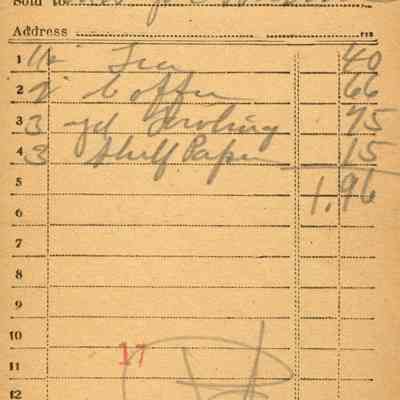 Sold to
Address
1 Tea 40
2 2 Coffee 66
3 3 yd Toweling 75
4 3 Shelf Paper 15
5 1.96
6
7
8
9
10
17
11
12